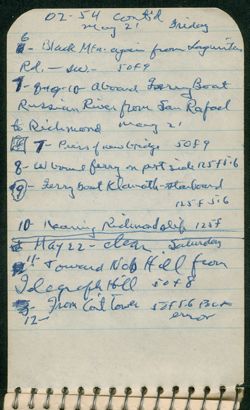 02-54 cont'd
May 21 Friday
6 - Black Mtn. again from Lagunitas
Rd. - sw. - 50 f 9
7 - prog-10 aboard Ferry Boat
Russian River from San Rafael
to Richmond May 21
7 - Piers of new bridge 50 f 9
8 - W bound ferry on port side 125 f 5.6
9 - Ferry boat Klamath - starboard
125 f 5.6
10 - Nearing Richmond slip 125 f
May 22 - clear Saturday
11 - Toward Nob Hill from
Telegraph Hill 50 f 8
From Coit Tower 50 f 5.6
12 - error